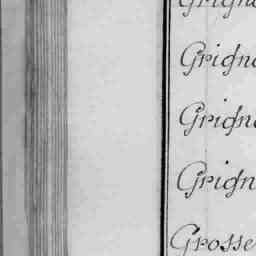 Grign
Grign
Grign
Grign
Grosse